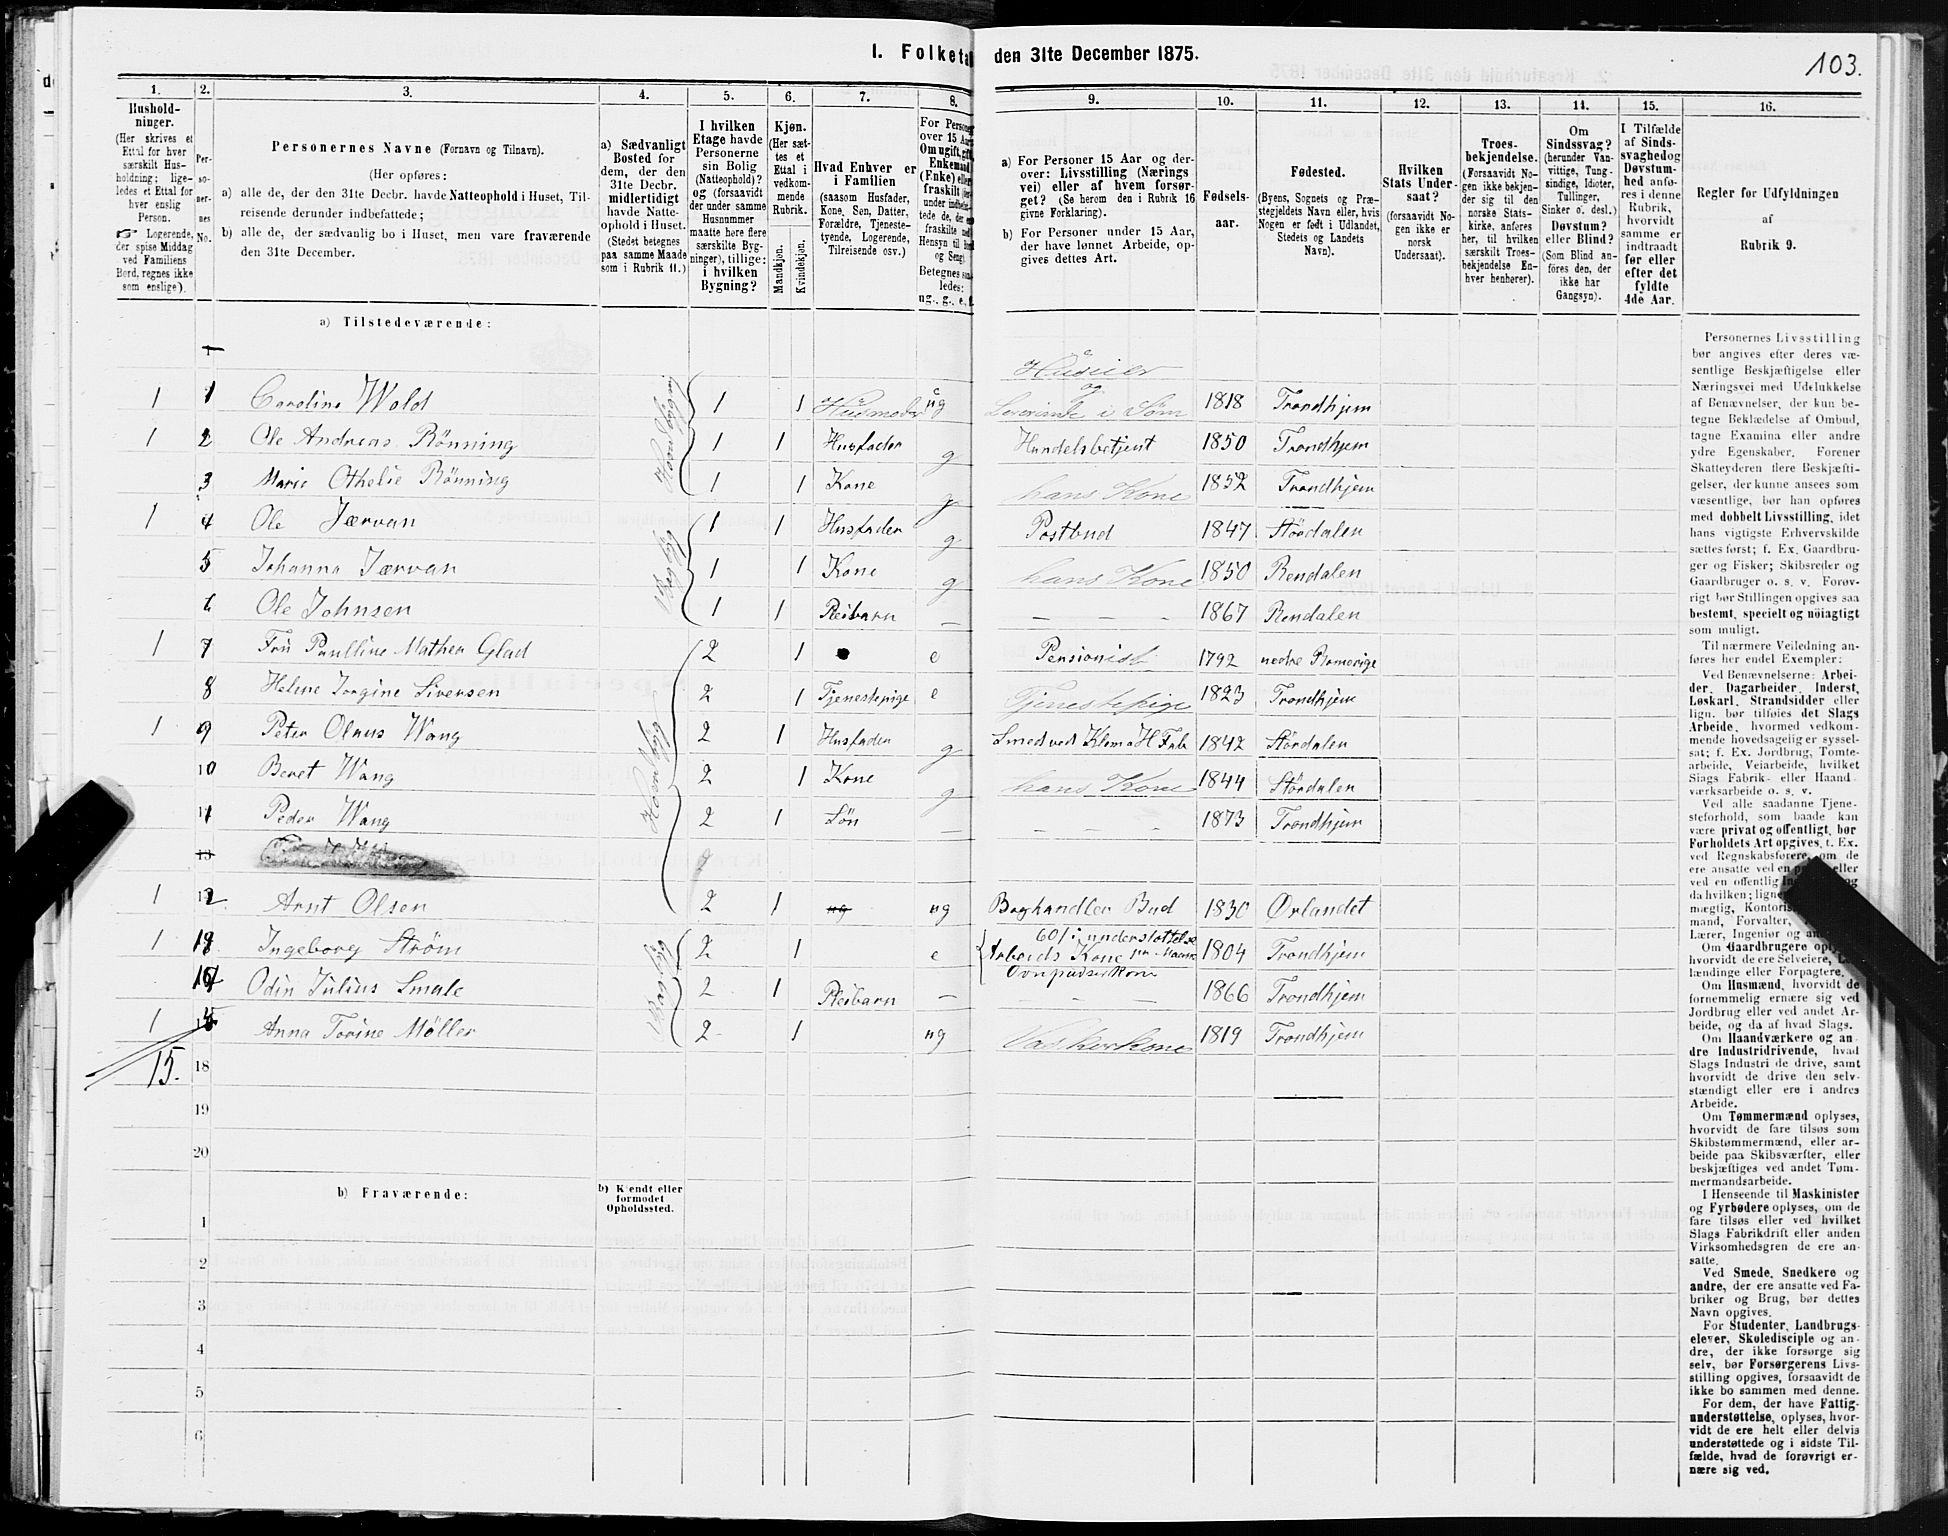 I. Folketa den 31te December 1875.
103.
1. 2. 3. 4. 5. 6. 7. 8. 9. 10. 11. 12. 13. 14. 15. 16.
Hushold-
ninger.
(Her skrives et
Ettal for hver
særskilt Hus-
holdning; lige-
ledes et Ettal for
hver enslig
Person.
☞ Logerende,
der spise Middag
ved Familiens
Bord, regnes ikke
som enslige).
Per-
so-
ner-
nes
No.
Personernes Navne (Fornavn og Tilnavn).
(Her opføres:
a) alle de, der den 31te Decbr. havde Natteophold i Huset, Til-
reisende derunder indbefattede;
b) alle de, der sædvanlig bo i Huset, men vare fraværende
den 31te December.
a) Sædvanligt
Bosted for
dem, der den
31te Decbr.
midlertidigt
havde Natte-
ophold i Huset.
(Stedet betegnes
paa samme Maade
som i Rubrik 11.)
I hvilken
Etage havde
Personerne
sin Bolig
(Natteophold)?
og (forsaavidt
der under samme
Husnummer
maatte høre flere
særskilte Byg-
ninger), tillige:
i hvilken
Bygning?
Kjøn.
(Her sæt-
tes et
Ettal i
vedkom-
mende
Rubrik.
Mandkjøn.
Kvindekjøn.
Hvad Enhver er
i Familien
(saasom Husfader,
Kone, Søn, Datter,
Forældre, Tjeneste-
tyende, Logerende,
Tilreisende osv.)
For Persone
over 15 Aar
Om ugift, gift,
Enkemand
(Enke) eller
fraskilt
under indbefat-
tede de, der
fraskilte
Hensyn til Bord
og Seng).
Betegnes saa-
ledes:
ug., g., e., f.
a) For Personer 15 Aar og der-
over: Livsstilling (Nærings
vei) eller af hvem forsør-
get? (Se herom den i Rubrik 16
givne Forklaring).
b) For Personer under 15 Aar,
der have lønnet Arbeide, op-
gives dettes Art.
Fødsels-
aar.
Fødested.
(Byens, Sognets og Præ-
stegjeldets Navn eller, hvis
Nogen er født i Udlandet,
Stedets og Landets
Navn).
Hvilken
Stats Under-
saat?
(forsaavidt No-
gen ikke er
norsk
Undersaat).
Troes-
bekjendelse.
(Forsaavidt No-
gen ikke bekjen-
der sig til den
norske Stats-
kirke, anføres
her, til hvilken
særskilt Troes-
bekjendelse En-
hver henhører).
Om
Sindssvag?
(herunder Van-
vittige, Tung-
sindige, Idioter,
Tullinger,
Sinker o. desl.)
Døvstum?
eller Blind?
(Som Blind an-
føres den, der
ikke har
Gangsyn).
I Tilfælde
af Sinds-
svaghed og
Døvstum-
hed anfø-
res i denne
Rubrik,
hvorvidt
samme er
indtraadt
før eller
efter det
fyldte
4de Aar.
Regler for Udfyldningen
af
Rubrik 9.
a) Tilstedeværende:
1 1 Caroline Wold 1 1 Husmoder ug Huseier og Leverante i Søm 1818 Trondhjem
1 2 Ole Andreas Rönning 1 1 Husfader g Handelsbetjent 1850 Trondhjem
3 Marie Othelie Rönning 1 1 Kone g hans Kone 1852 Trondhjem
1 4 Ole Jærvan 1 1 Husfader g Postbud 1847 Stördalen
5 Johanna Jærvan 1 1 Kone g hans Kone 1850 Rendalen
6 Ole Johnsen 1 1 Pleibarn — — — — 1867 Rendalen
1 7 Fru Paulline Mathea Glad 2 1 e Pensionist 1792 nedre Romerige
8 Heline Jorgine Siversen 2 1 Tjenestepige e Tjenestepige 1823 Trondhjem
1 9 Peter Olaus Wang 2 1 Husfader g Smed ved Klem a H Fab 1842 Stördalen
10 Beret Wang 2 1 Kone g hans Kone 1844 Stördalen
11 Peder Wang 2 1 Sön — — — — 1873 Trondhjem
13
1 12 Arnt Olsen 2 1 ug ug Boghandler Bud 1830 Ørlandet
1 13 Ingeborg Ström 2 1 e Arbeids Kone 1804 Trondhjem
14 Odin Julius Smale 2 1 Pleibarn — — — — 1866 Trondhjem
1 15 Anna Torine Møller 2 1 ug Vaskerkone 1819 Trondhjem
15.
18
19
20
b) Fraværende:
b) Kjendt eller
formodet
Opholdssted.
1
2
3
4
5
6
Personernes Livsstilling
bør angives efter deres væ-
sentlige Beskjæftigelse eller
Næringsvei med Udelukkelse
af Benævnelser, der kun be-
tegne Beklædelse af Ombud,
tagne Examina eller andre
ydre Egenskaber. Forener
Skatteyderen flere Beskjæfti-
gelser, der kunne ansees som
væsentlige, bør han opføres
med dobbelt Livsstilling, idet
hans vigtigste Erhvervskilde
sættes først; f. Ex. Gaardbru-
ger og Fisker; Skibsreder og
Gaardbruger o. s. v. Forøv-
rigt bør Stillingen opgives saa
bestemt, specielt og nøiagtigt
som muligt.
Til nærmere Veiledning an-
føres her endel Exempler:
Ved Benævnelserne: Arbei-
der, Dagarbeider, Inderst,
Løskarl, Strandsidder eller
lign. bør tilføies det Slags
Arbeide, hvormed vedkom-
mende hovedsagelig er syssel-
sat; f. Ex. Jordbrug, Tomte-
arbeide, Veiarbeide, hvilket
Slags Fabrik- eller Haand-
værksarbeide o. s. v.
Ved alle saadanne Tjene-
steforhold, som baade kan
være privat og offentligt, bør
Forholdets Art opgives, f. Ex.
ved Regnskabsførere, om de
ere ansatte ved en p eller
ved en offentlig In og
da hvilken; lign
mægtig, Kontoris
mand, Forvalter,
Lærer, Ingeniør og an
Om Gaardbrugere oply
hvorvidt de ere Selveiere, L
lændinge eller Forpagtere.
Om Husmænd, hvorvidt de
fornemmelig ernære sig ved
Jordbrug eller ved andet Ar-
beide, og da af hvad Slags.
Om Haandværkere og an-
dre Industridrivende, hvad
Slags Industri de drive, samt
hvorvidt de drive den selv-
stændigt eller ere i andres
Arbeide.
Om Tømmermænd oplyses,
hvorvidt de fare tilsøs som
Skibstømmermænd, eller ar-
beide paa Skibsværfter, eller
beskjæftiges ved andet Tøm-
mermandsarbeide.
I Henseende til Maskinister
og Fyrbødere oplyses, om de
fare tilsøs eller ved hvilket
Slags Fabrikdrift eller anden
Virksomhedsgren de ere an-
satte.
Ved Smede, Snedkere og
andre, der ere ansatte ved Fa-
briker og Brug, bør dettes
Navn opgives.
For Studenter, Landbrugs-
elever, Skoledisciple og an-
dre, der ikke forsørge sig
selv, bør Forsørgerens Livs-
stilling opgives, forsaavidt de
ikke bo sammen med denne.
For dem, der have Fattig-
understøttelse, oplyses, hvor-
vidt de ere helt eller delvis
understøttede og i sidste Til-
fælde, hvad de forøvrigt er-
nære sig ved.